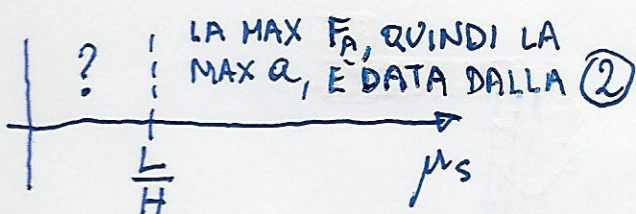 ? LA MAX FA, QUINDI LA
MAX a, È DATA DALLA 2
L
H
μs